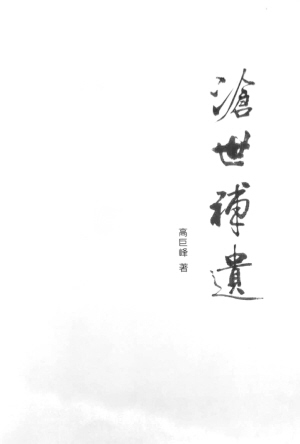 滄世補遺
高巨峰 著